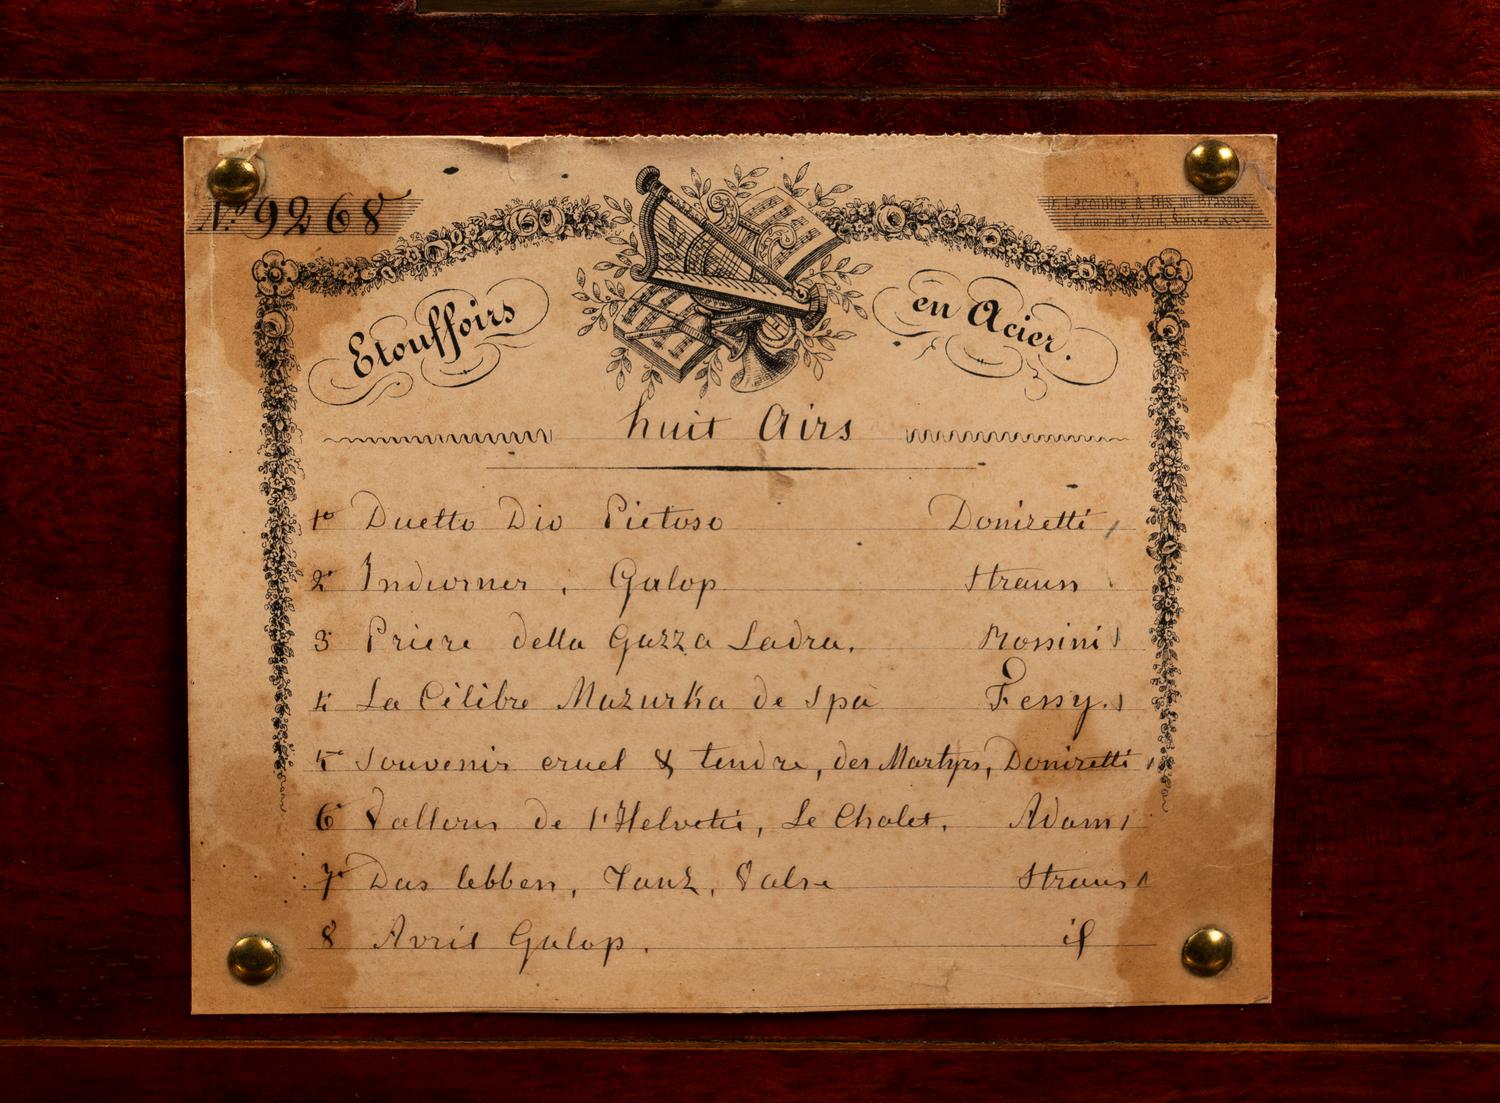 No. 9268
Lecoultre & fils, au Brassus
Canton de Vaud, Suisse
Etouffoirs en Acier.
huit Airs
1o Duetto Dio Pietoso Donizetti
2o Galop Strauss
3 Priere della Gazza Ladra, Rossini
4 La Célibre Mazurka de Spa Fessy.
5o Souvenir cruel & tendre, des Martyrs, Donizetti
6o Vallons de l'Helvetie, Le Chalet, Adam
7o Das lebben, Tanz, Valse Straus
8 Avril Galop. if